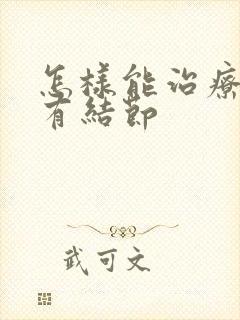 怎樣能治療
有結節
武可文